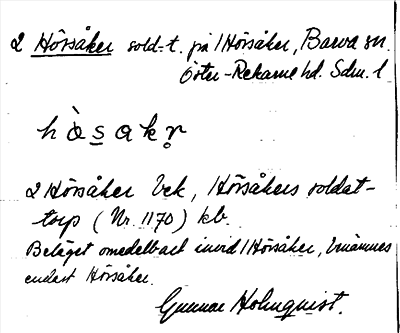 2 Hörsåker sold-t. på 1 Hörsåker, Barva sn.
Öster-Rekarne hd. Sdm. l
hὰsakr̥
2 Hörsåker bek, Hörsåkers soldat-
torp (Nr. 1170) kb
Beläget omedelbart invid 1 Hörsåker, benämnes
endast Hörsåker.
Gunnar Holmquist.